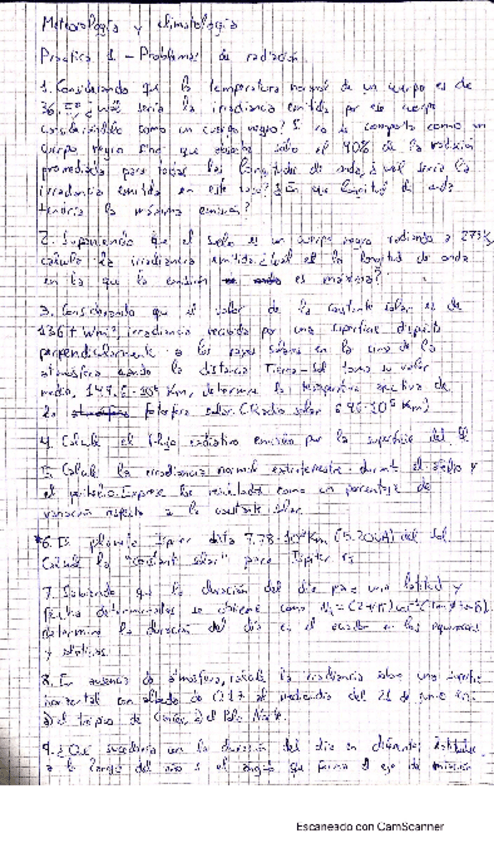 Meteorología y climatología
Practica 1. - Problemas de radiación.
1. Considerando que la temperatura normal de un cuerpo es de
36,5º ¿cuál sería la irradiancia emitida por ese cuerpo
considerándolo como un cuerpo negro? Si no se comporta como un
cuerpo negro sino que absorbe sólo el 90% de la radiación
promediada para todas las longitudes de onda, ¿cuál sería la
irradiancia emitida en este caso? ¿En que longitud de onda
tendría la máxima emisión?
2. Suponiendo que el suelo es un cuerpo negro radiando a 273K,
calcule la irradiancia emitida. ¿Cuál es la longitud de onda
en la que la emisión es máxima?
3. Considerando que el valor de la constante solar es de
1367 Wm⁻², irradiancia recibida por una superficie dispuesta
perpendicularmente a los rayos solares en la cima de la
atmósfera cuando la distancia Tierra-Sol toma su valor
medio, 149,6·10⁶ Km, determine la temperatura efectiva de
la fotosfera solar. (Radio solar 6.96·10⁵ Km)
4. Calcule el flujo radiativo emitido por la superficie del Sol
5. Calcule la irradiancia normal extraterrestre durante el afelio y
el perihelio. Exprese los resultados como un porcentaje de
variación respecto a la constante solar.
*6. El planeta Júpiter dista 7.78·10⁸ Km (5.20UA) del Sol.
Calcule la "constante solar" para Júpiter
7. Sabiendo que la duración del día para una latitud y
fecha determinadas se obtiene como
determine la duración del día en el ecuador en los equinoccios
y solsticios.
8. En ausencia de atmósfera, calcule la irradiancia sobre una superficie
horizontal con albedo de 0.17 al mediodía del 21 de junio en:
a) el trópico de Cáncer, b) el Polo Norte.
9. ¿Qué sucedería con la duración del día en diferentes latitudes
a lo largo del año si el ángulo que forma el eje de rotación
Escaneado con CamScanner